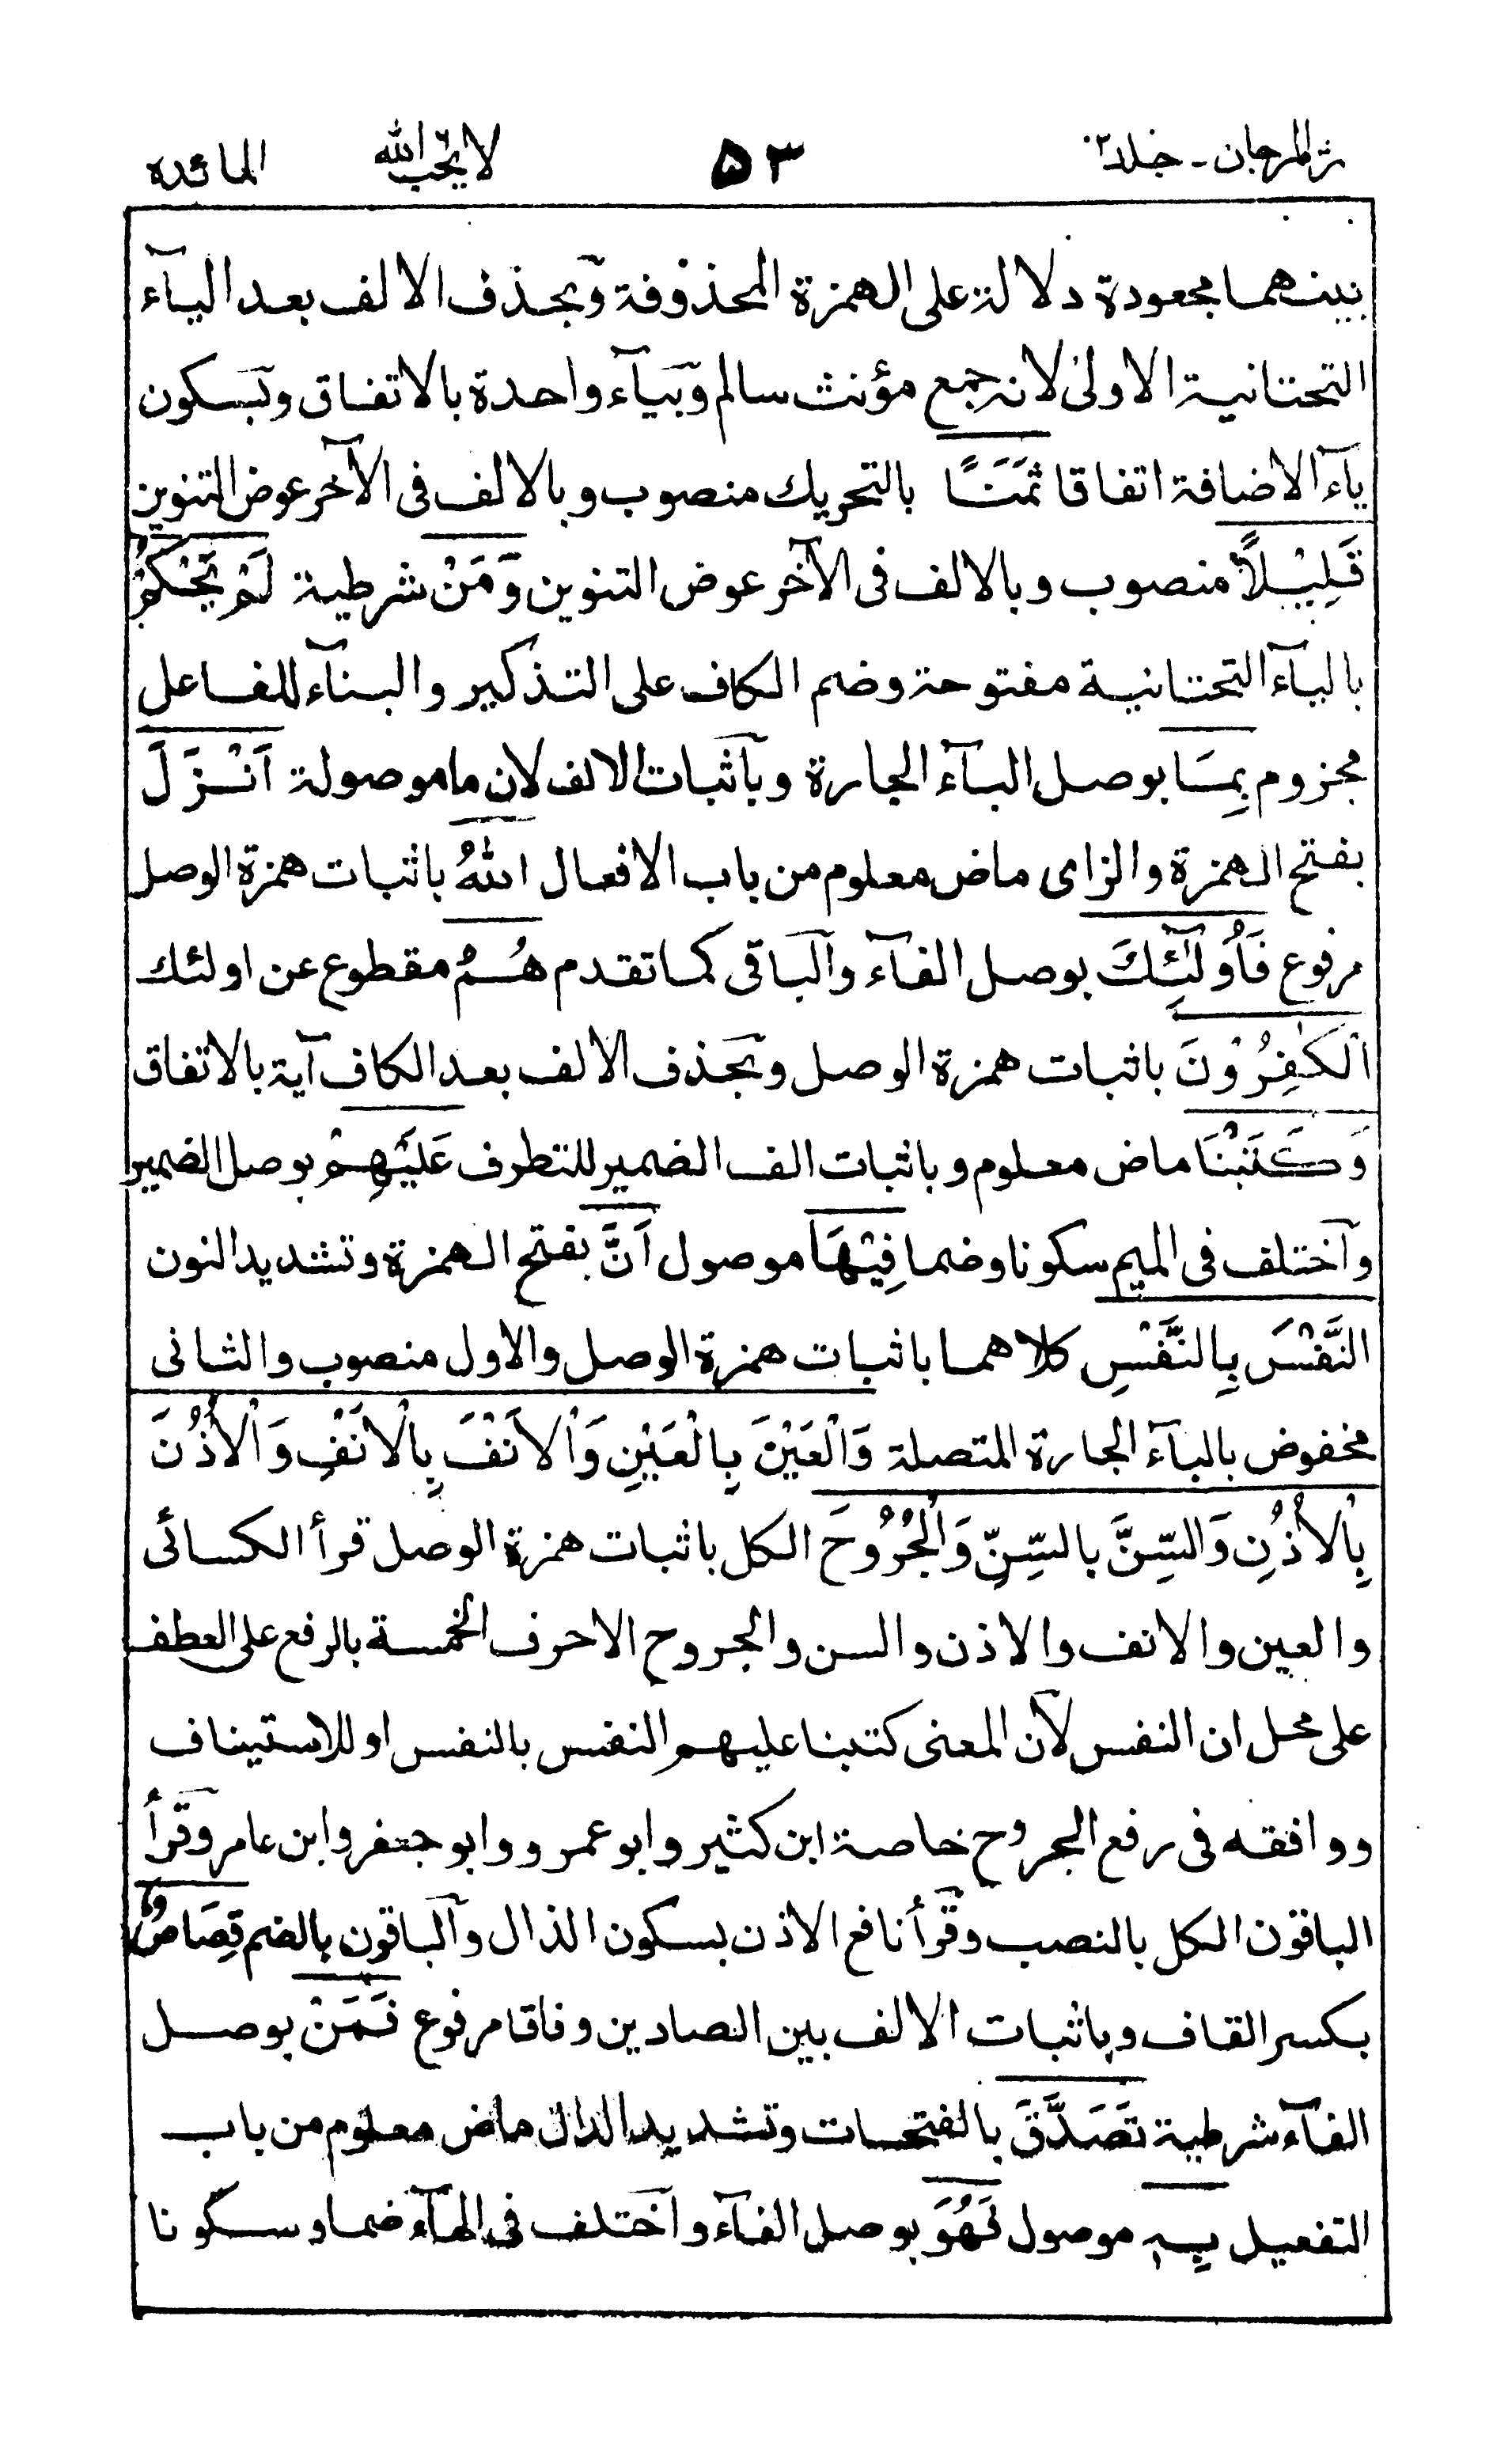 نثر المرجان - جلد ٢
٥٣
لا يحب الله
المائدة
بينهما مجعودة دلالة على الهمزة المحذوفة وبحذف الالف بعد اليآء
التحتانية الاولى لانه جمع مؤنث سالم وبيآء واحدة بالاتفاق وبسكون
يآء الاضافة اتفاقا ثَمَنًا بالتحريك منصوب وبالالف فى الآخر عوض التنوين
قَلِيْلًا منصوب وبالالف فى الآخر عوض التنوين وَمَنْ شرطية لَمْ يَحْكُمْ
باليآء التحتانية مفتوحة وضم الكاف على التذكير والبنآء للفاعل
مجزوم بِمَا بوصل البآء الجارة وباثبات الالف لان ما موصولة اَنْزَلَ
بفتح الهمزة والزاى ماض معلوم من باب الافعال اللهُ باثبات همزة الوصل
مرفوع فَاُولٰٓئِكَ بوصل الفآء والباقى كما تقدم هُمُ مقطوع عن اولئك
الْكٰفِرُوْنَ باثبات همزة الوصل وبحذف الالف بعد الكاف آية بالاتفاق
وَكَتَبْنَا ماض معلوم وباثبات الف الضمير للتطرف عَلَيْهِمْ بوصل الضمير
واختلف فى الميم سكونا وضما فِيْهَا موصول اَنَّ بفتح الهمزة وتشديد النون
النَّفْسَ بِالنَّفْسِ كلاهما باثبات همزة الوصل والاول منصوب والثانى
مخفوض بالبآء الجارة المتصلة وَالْعَيْنَ بِالْعَيْنِ وَالْاَنْفَ بِالْاَنْفِ وَالْاُذُنَ
بِالْاُذُنِ وَالسِّنَّ بالسِّنِّ وَالْجُرُوْحَ الكل باثبات همزة الوصل قرأ الكسائى
والعين والانف والاذن والسن والجروح الاحرف الخمسة بالرفع على العطف
على محل ان النفس لان المعنى كتبنا عليهم النفس بالنفس او للاستيناف
ووافقه فى رفع الجروح خاصة ابن كثير وابو عمرو وابو جعفر وابن عامر وقرأ
الباقون الكل بالنصب وقرأ نافع الاذن بسكون الذال والباقون بالضم قِصَاصٌ
بكسر القاف وباثبات الالف بين الصادين وفاقا مرفوع فَمَنْ بوصل
الفآء شرطية تَصَدَّقَ بالفتحات وتشديد الدال ماض معلوم من باب
التفعيل بِهٖ موصول فَهُوَ بوصل الفآء واختلف فى الهآء ضما وسكونا